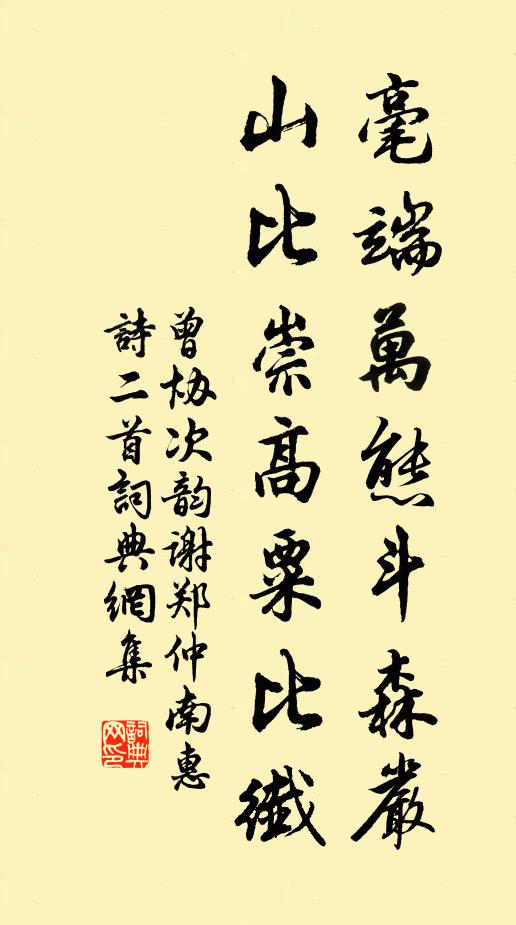 毫端萬態斗森嚴
山比崇高粟比纖
曾協次韵谢郑仲南惠
詩二首詞典網集
詞典网印